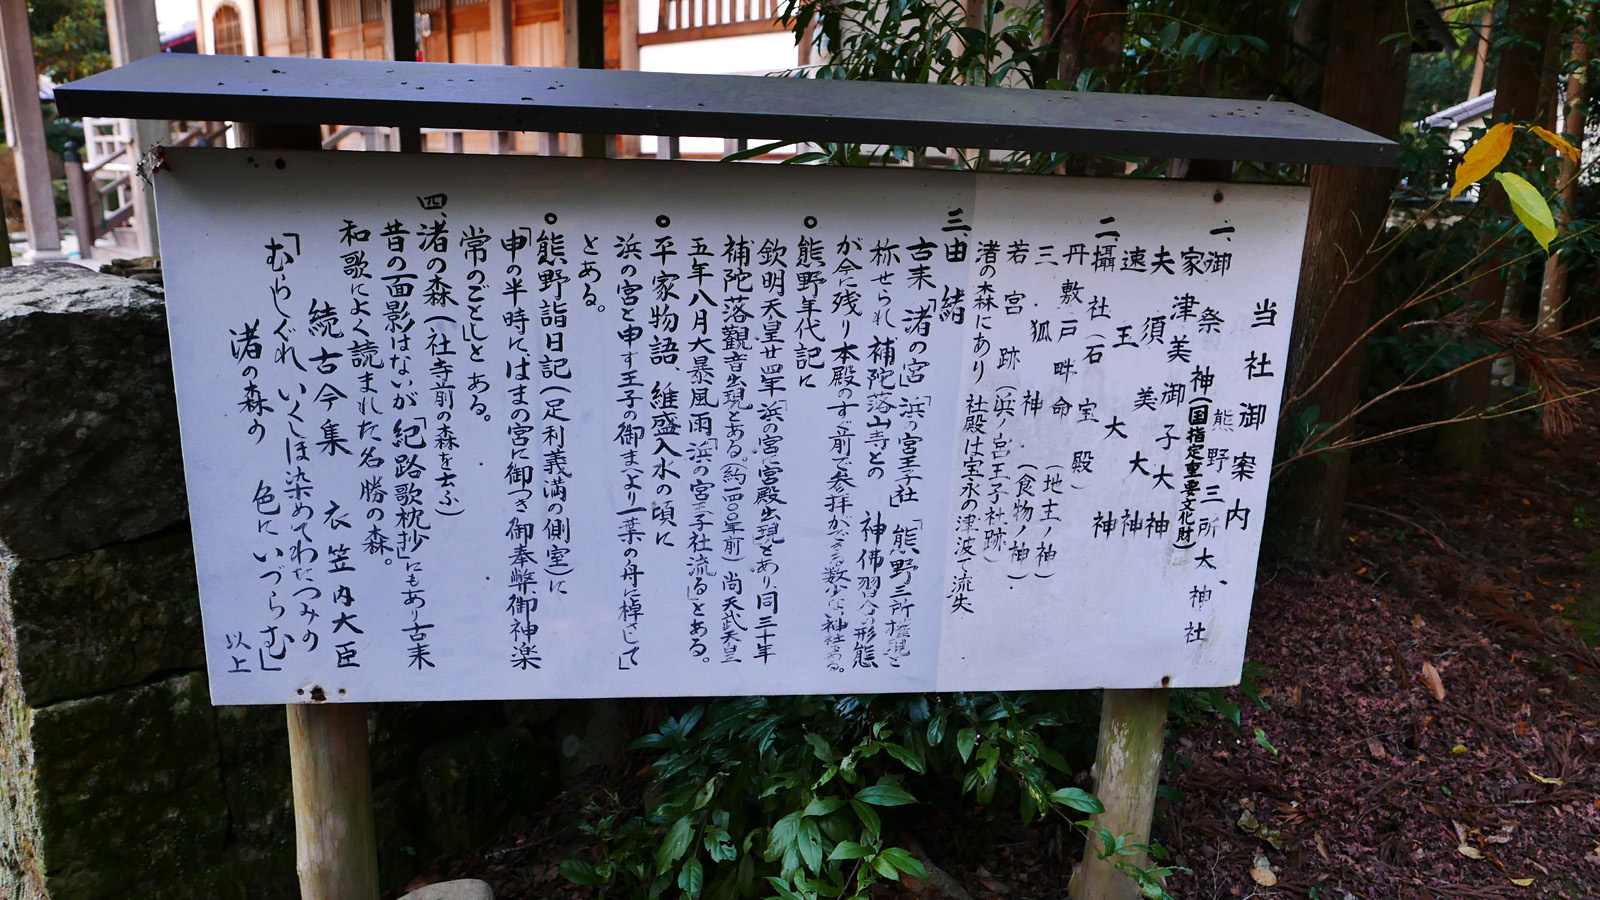 当社御案内
熊野三所大神社
一、御祭神(国指定重要文化財)
家津美御子大神
夫須美大神
速玉大神
二、攝社(石宝殿)
丹敷戸畔命(地主ノ神)
三狐神(食物神)
若宮跡(浜ノ宮王子社跡)
渚の森にあり社殿は宝永の津波で流失
三、由緒
古来「渚の宮」「浜の宮王子社」「熊野三所権現」と
称せられ補陀落山寺との神佛習合の形態
が今に残り本殿のすぐ前で参拝ができる数少ない神社である。
○熊野年代記に
欽明天皇廿四年「浜の宮に宮殿出現」とあり同三十年
補陀落観音出現とある。(約一四〇〇年前)尚天武天皇
五年八月大暴風雨「浜の宮王子社流る」とある。
○平家物語、維盛入水の頃に
浜の宮と申す王子の御まへより一葉の舟に棹さして」
とある。
○熊野詣日記(足利義満の側室)に
「申の半時にはまの宮に御つき御奉幣御神楽
常のごとし」とある。
四、渚の森(社寺前の森を云ふ)
昔の面影はないが「紀路歌枕抄」にもあり古来
和歌によく読まれた名勝の森。
続古今集 衣笠内大臣
「むらしぐれいくしほ染めてわたつみの
渚の森の色にいづらむ」
以上